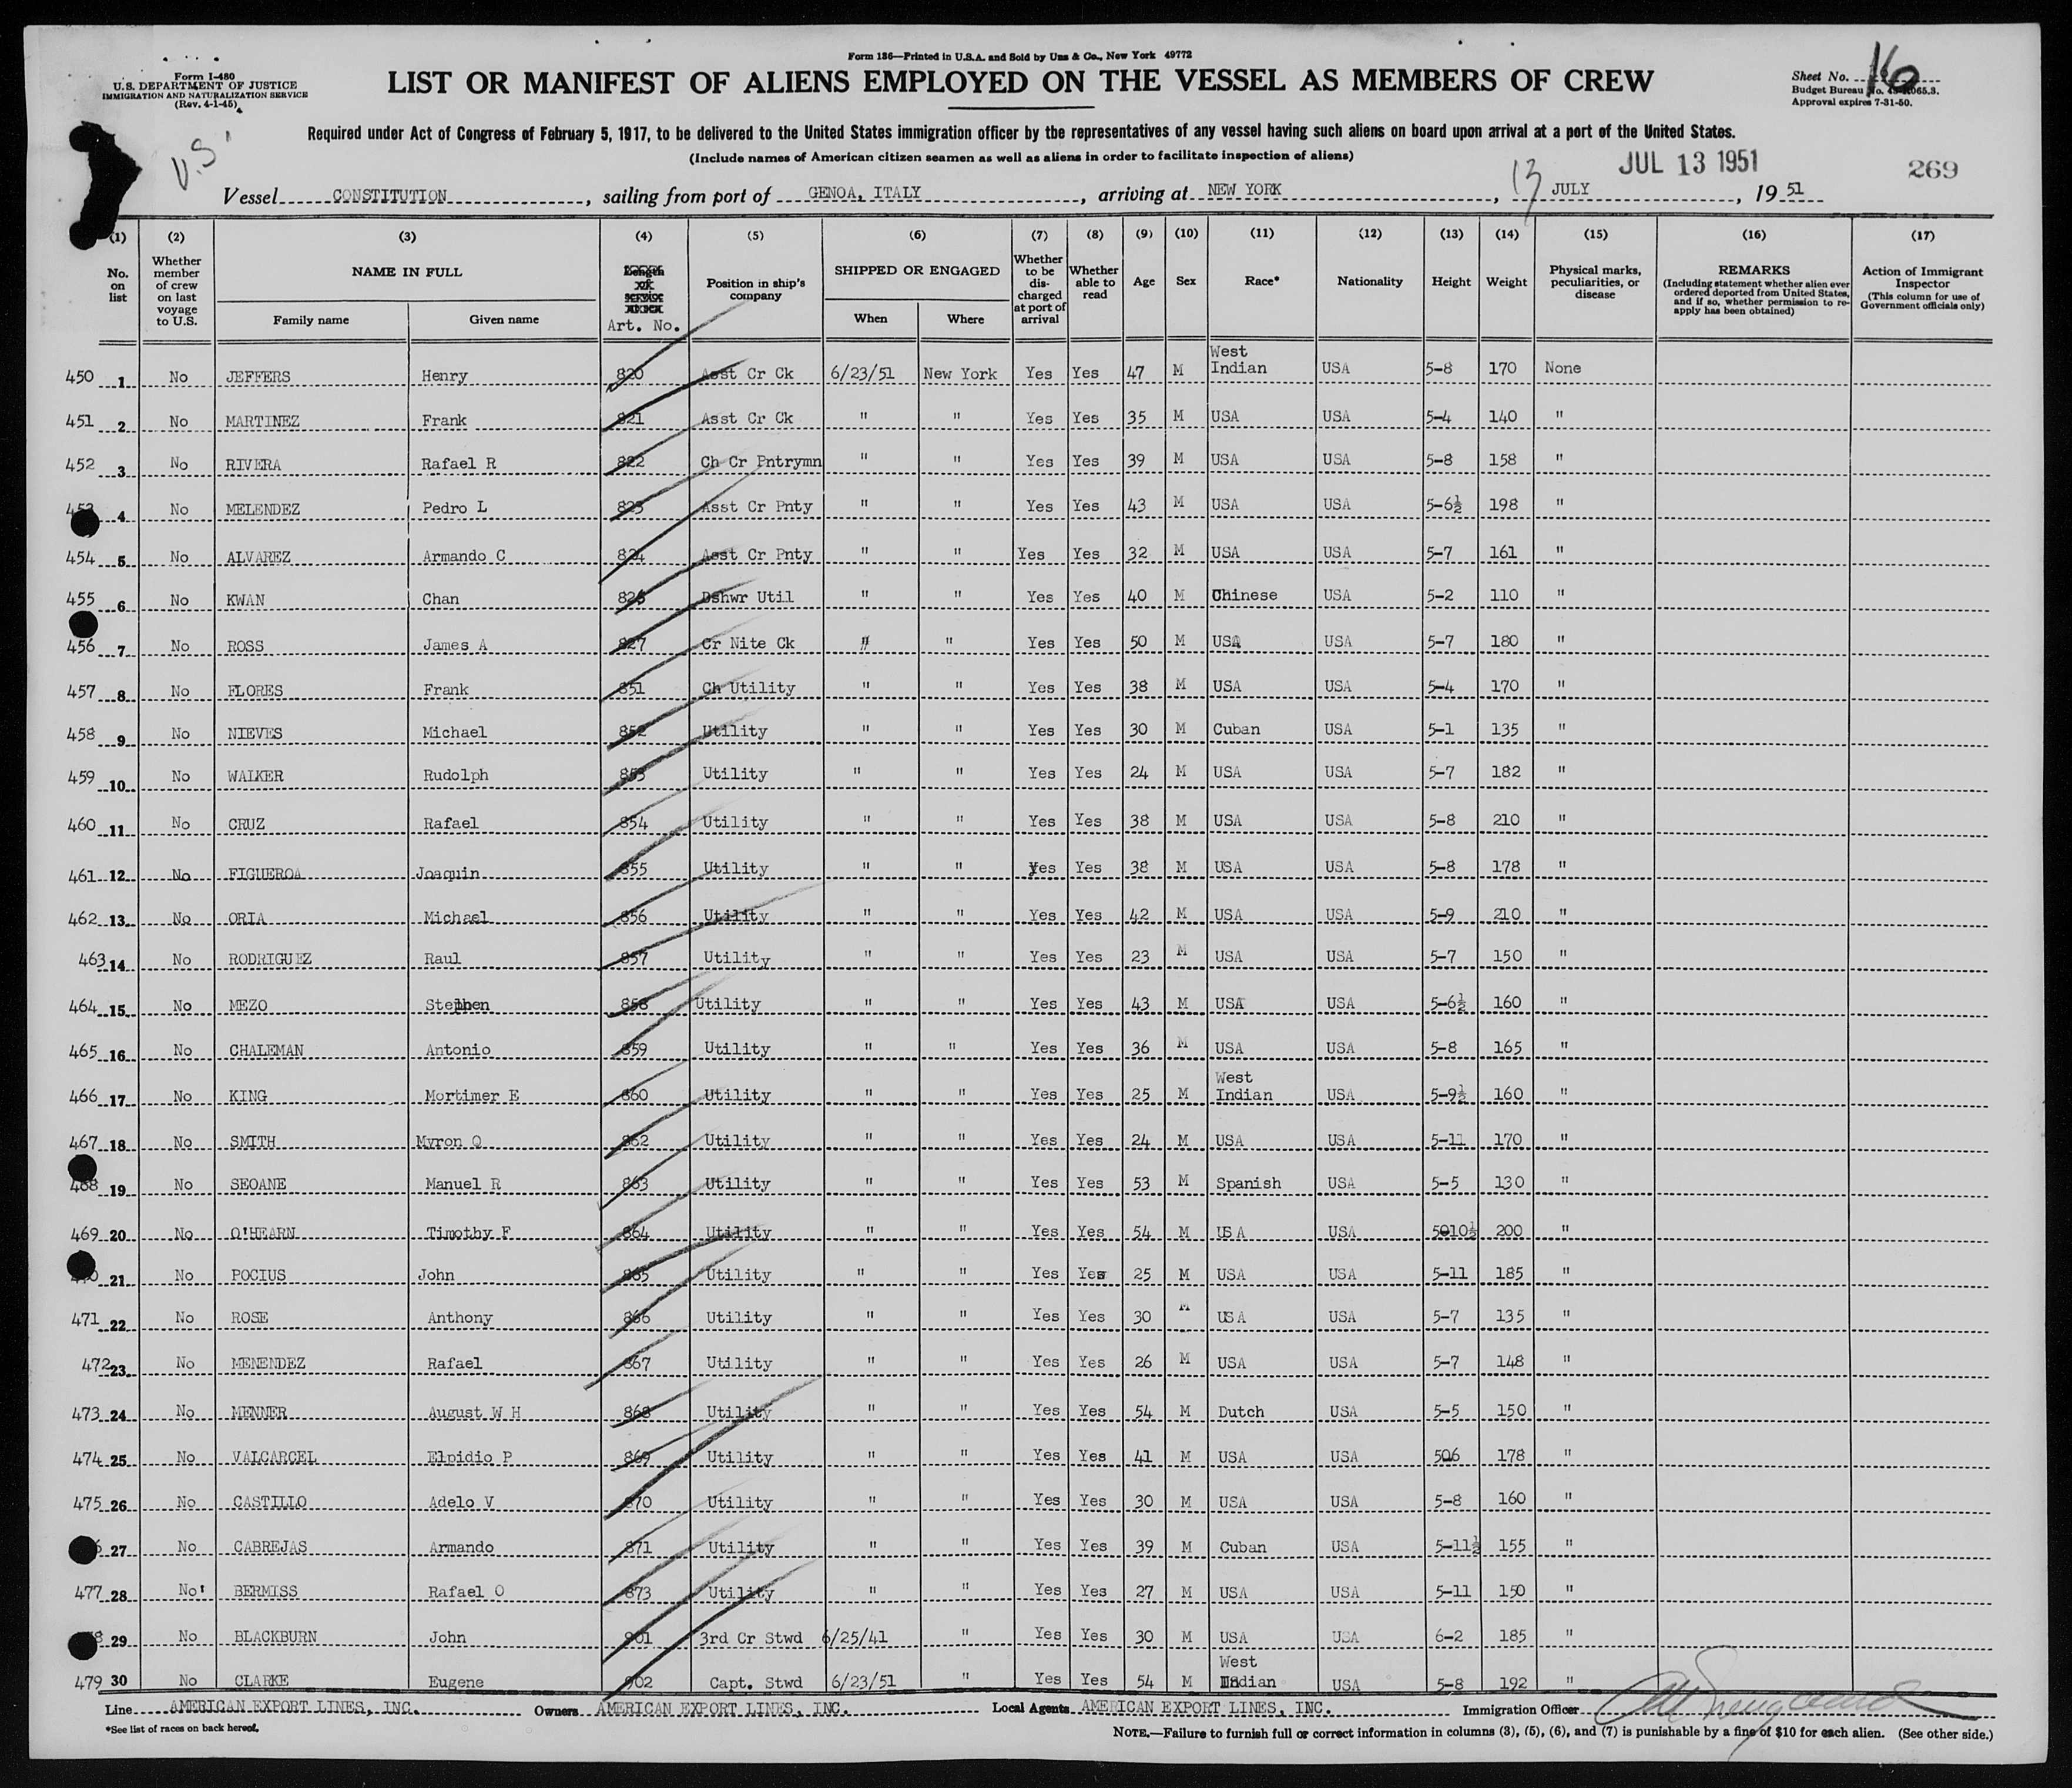 Form 136—Printed in U.S.A. and Sold by Unz & Co., New York 49772
Form I-480
U.S. DEPARTMENT OF JUSTICE
IMMIGRATION AND NATURALIZATION SERVICE
(Rev. 4-1-45)
LIST OR MANIFEST OF ALIENS EMPLOYED ON THE VESSEL AS MEMBERS OF CREW
Sheet No. 16
Budget Bureau No.
Approval expires 7-31-50.
Required under Act of Congress of February 5, 1917, to be delivered to the United States immigration officer by the representatives of any vessel having such aliens on board upon arrival at a port of the United States.
(Include names of American citizen seamen as well as aliens in order to facilitate inspection of aliens)
U.S.
JUL 13 1951
269
Vessel CONSTITUTION, sailing from port of GENOA, ITALY, arriving at NEW YORK, 13 JULY, 19 51
(1) (2) (3) (4) (5) (6) (7) (8) (9) (10) (11) (12) (13) (14) (15) (16) (17)
No. on list
Whether member of crew on last voyage to U.S.
NAME IN FULL
Family name
Given name
Length of service
Art. No.
Position in ship's company
SHIPPED OR ENGAGED
When
Where
Whether to be discharged at port of arrival
Whether able to read
Age
Sex
Race*
Nationality
Height
Weight
Physical marks, peculiarities, or disease
REMARKS
(Including statement whether alien ever ordered deported from United States, and if so, whether permission to reapply has been obtained)
Action of Immigrant Inspector
(This column for use of Government officials only)
450 1 No JEFFERS Henry 820 Asst Cr Ck 6/23/51 New York Yes Yes 47 M West Indian USA 5-8 170 None
451 2 No MARTINEZ Frank 821 Asst Cr Ck " " Yes Yes 35 M USA USA 5-4 140 "
452 3 No RIVERA Rafael R 822 Ch Cr Pntrymn " " Yes Yes 39 M USA USA 5-8 158 "
453 4 No MELENDEZ Pedro L 823 Asst Cr Pnty " " Yes Yes 43 M USA USA 5-6½ 198 "
454 5 No ALVAREZ Armando C 824 Asst Cr Pnty " " Yes Yes 32 M USA USA 5-7 161 "
455 6 No KWAN Chan 826 Dshwr Util " " Yes Yes 40 M Chinese USA 5-2 110 "
456 7 No ROSS James A 827 Cr Nite Ck " " Yes Yes 50 M USA USA 5-7 180 "
457 8 No FLORES Frank 851 Ch Utility " " Yes Yes 38 M USA USA 5-4 170 "
458 9 No NIEVES Michael 852 Utility " " Yes Yes 30 M Cuban USA 5-1 135 "
459 10 No WALKER Rudolph 853 Utility " " Yes Yes 24 M USA USA 5-7 182 "
460 11 No CRUZ Rafael 854 Utility " " Yes Yes 38 M USA USA 5-8 210 "
461 12 No FIGUEROA Joaquin 855 Utility " " Yes Yes 38 M USA USA 5-8 178 "
462 13 No ORIA Michael 856 Utility " " Yes Yes 42 M USA USA 5-9 210 "
463 14 No RODRIGUEZ Raul 857 Utility " " Yes Yes 23 M USA USA 5-7 150 "
464 15 No MEZO Stephen 858 Utility " " Yes Yes 43 M USA USA 5-6½ 160 "
465 16 No CHALEMAN Antonio 859 Utility " " Yes Yes 36 M USA USA 5-8 165 "
466 17 No KING Mortimer E 860 Utility " " Yes Yes 25 M West Indian USA 5-9½ 160 "
467 18 No SMITH Myron Q 862 Utility " " Yes Yes 24 M USA USA 5-11 170 "
468 19 No SEOANE Manuel R 863 Utility " " Yes Yes 53 M Spanish USA 5-5 130 "
469 20 No O'HEARN Timothy F 864 Utility " " Yes Yes 54 M USA USA 5010½ 200 "
21 No POCIUS John 865 Utility " " Yes Yes 25 M USA USA 5-11 185 "
471 22 No ROSE Anthony 866 Utility " " Yes Yes 30 M USA USA 5-7 135 "
472 23 No MENENDEZ Rafael 867 Utility " " Yes Yes 26 M USA USA 5-7 148 "
473 24 No MENNER August W H 868 Utility " " Yes Yes 54 M Dutch USA 5-5 150 "
474 25 No VALCARCEL Elpidio P 869 Utility " " Yes Yes 41 M USA USA 506 178 "
475 26 No CASTILLO Adelo V 870 Utility " " Yes Yes 30 M USA USA 5-8 160 "
27 No CABREJAS Armando 871 Utility " " Yes Yes 39 M Cuban USA 5-11½ 155 "
477 28 No BERMISS Rafael O 873 Utility " " Yes Yes 27 M USA USA 5-11 150 "
29 No BLACKBURN John 901 3rd Cr Stwd 6/25/41 " Yes Yes 30 M USA USA 6-2 185 "
479 30 No CLARKE Eugene 902 Capt. Stwd 6/23/51 " Yes Yes 54 M West Indian USA 5-8 192 "
Line AMERICAN EXPORT LINES, INC. Owners AMERICAN EXPORT LINES, INC. Local Agents AMERICAN EXPORT LINES, INC. Immigration Officer
*See list of races on back hereof.
NOTE.—Failure to furnish full or correct information in columns (3), (5), (6), and (7) is punishable by a fine of $10 for each alien. (See other side.)